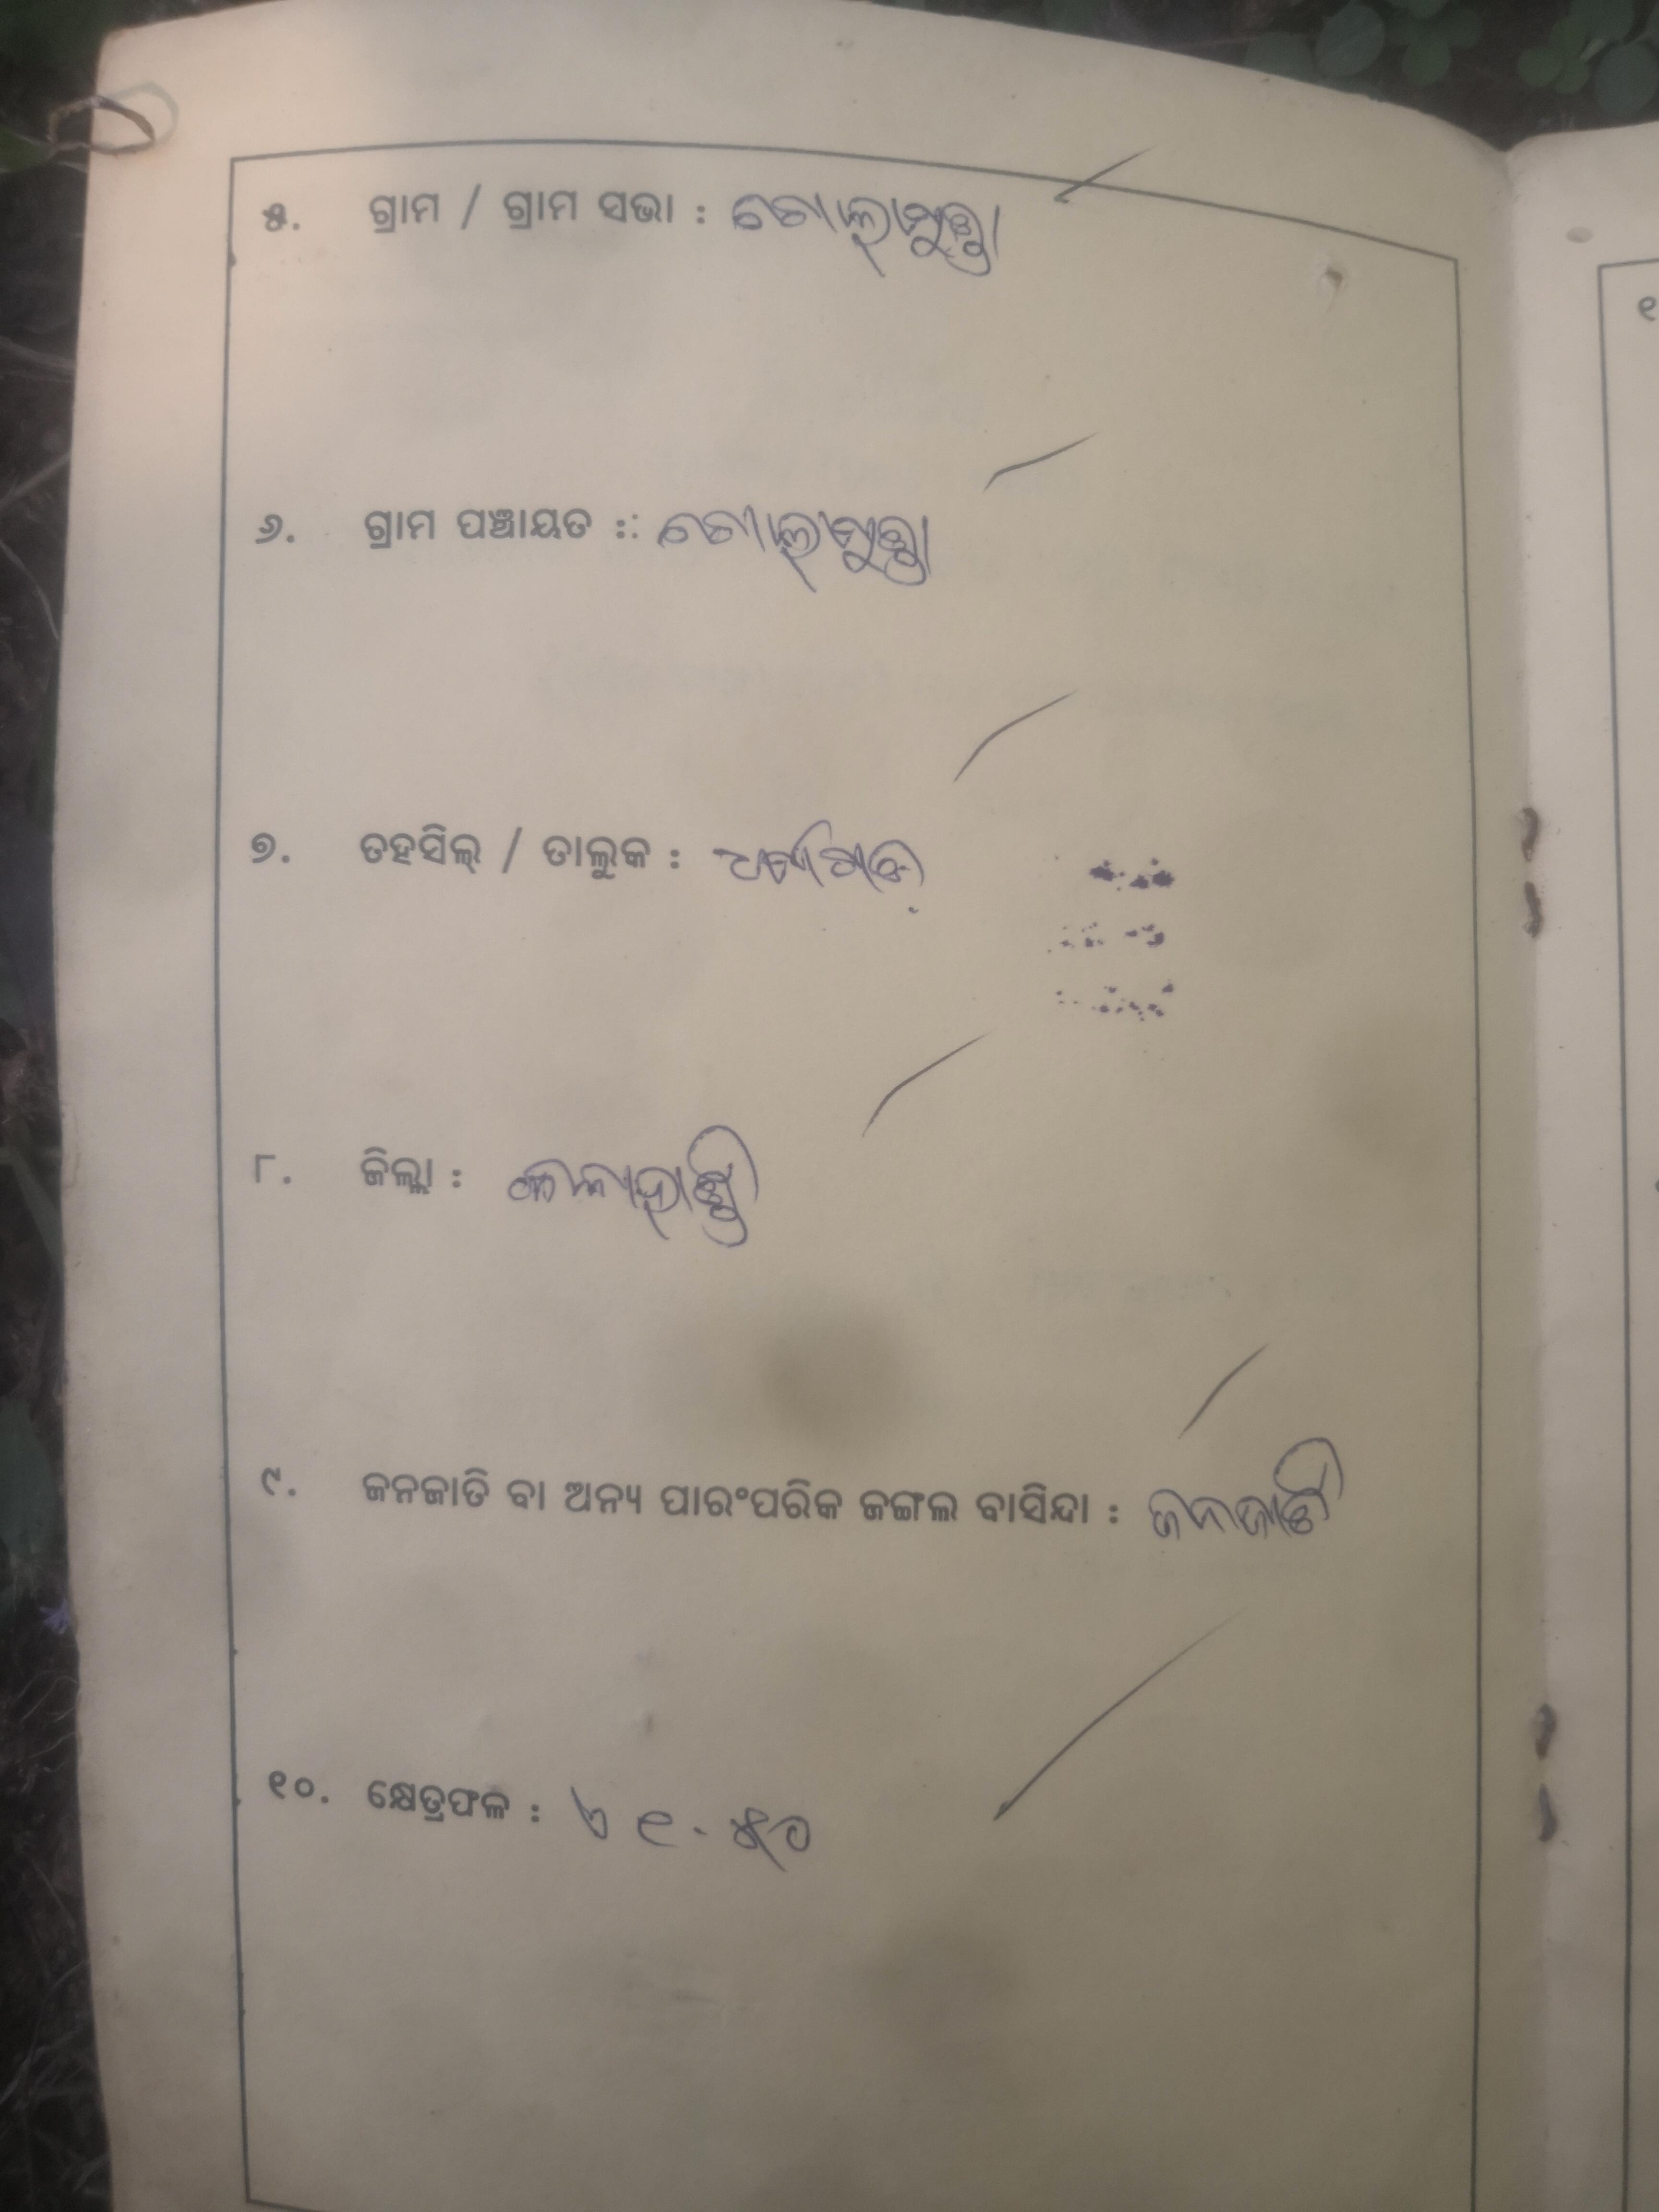 ୫. ଗ୍ରାମ / ଗ୍ରାମ ସଭା : ଗୋଲାମୁଣ୍ଡା
୬. ଗ୍ରାମ ପଞ୍ଚାୟତ :: ଗୋଲାମୁଣ୍ଡା
୭. ତହସିଲ୍ / ତାଲୁକ : ଧର୍ମଗଡ଼
୮. ଜିଲ୍ଲା : କଳାହାଣ୍ଡି
୯. ଜନଜାତି ବା ଅନ୍ୟ ପାରଂପରିକ ଜଙ୍ଗଲ ବାସିନ୍ଦା : ଜନଜାତି
୧୦. କ୍ଷେତ୍ରଫଳ : ଏ ୧.୫୦
୧